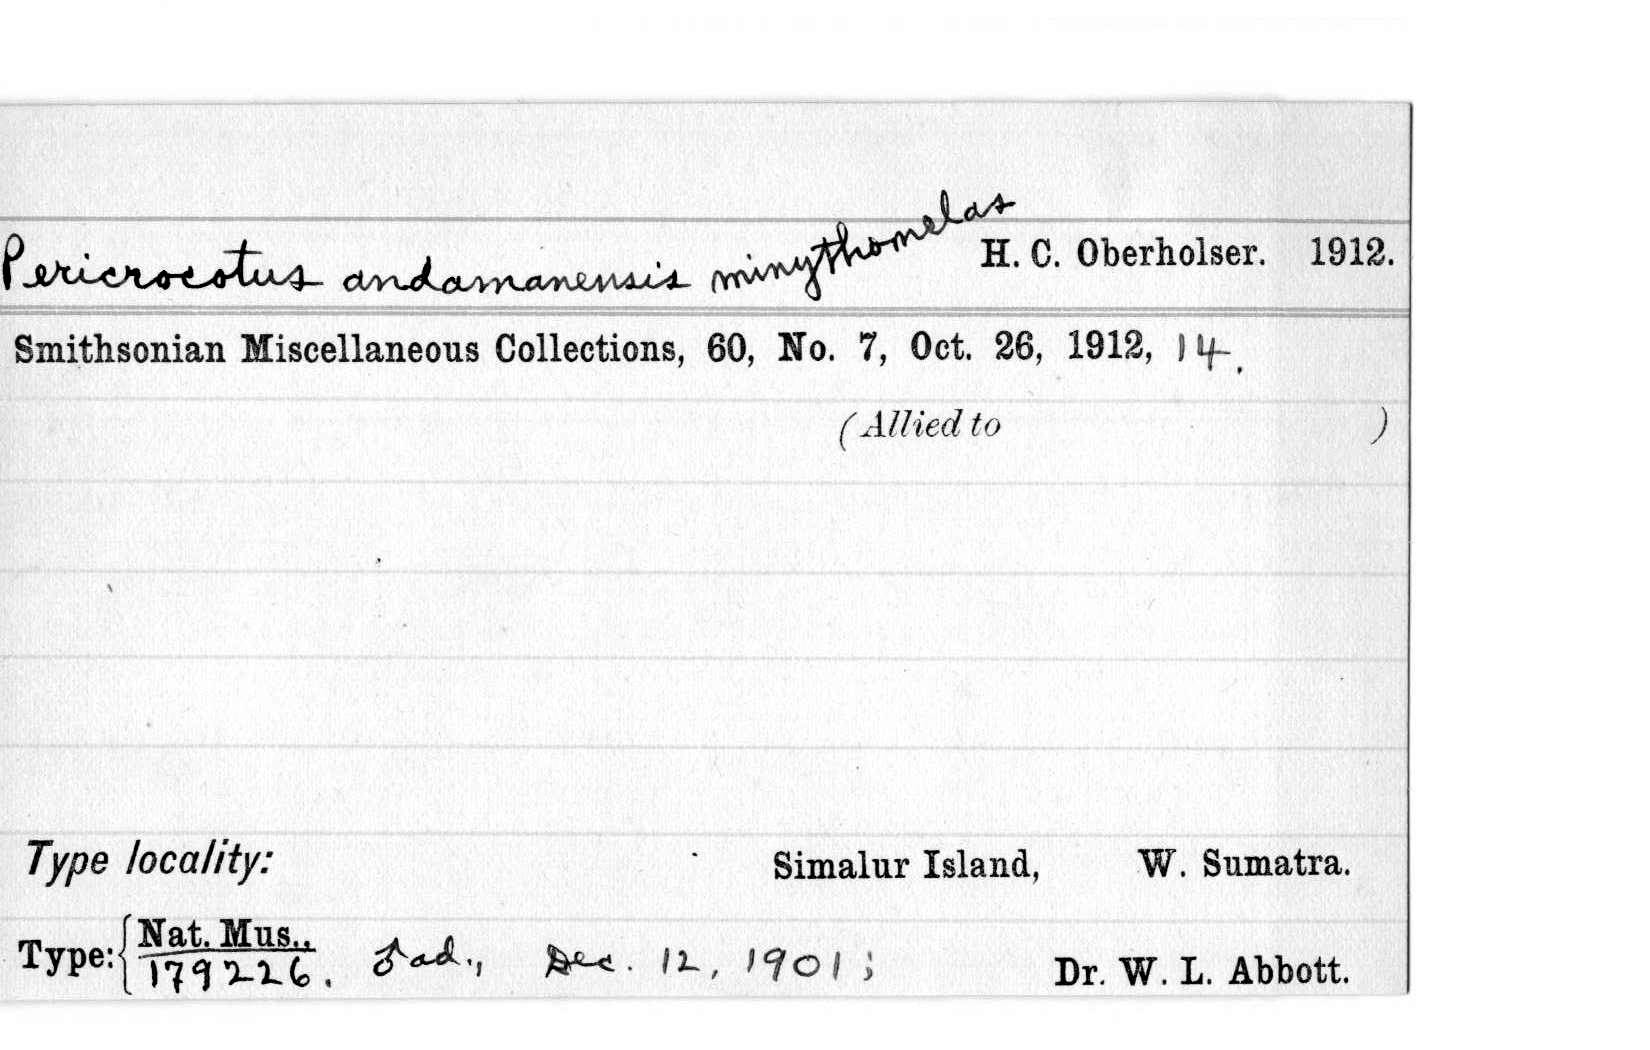 Pericrocotus andamanensis minythomelas H. C. Oberholser. 1912.
Smithsonian Miscellaneous Collections, 60, No. 7, Oct. 26, 1912, 14.
(Allied to )
Type locality: Simalur Island, W. Sumatra.
Type: { Nat. Mus..
179226. ♂ ad., Dec. 12, 1901; Dr. W. L. Abbott.